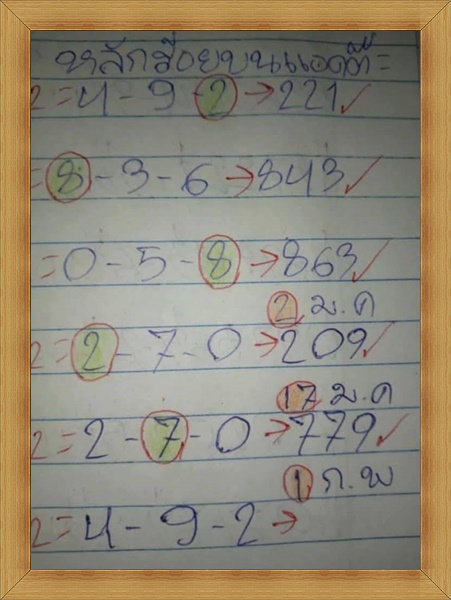 หลักร้อยบนแอดดี=
2=4-9-2→221✓
=8-3-6→843✓
=0-5-8→863✓
2 ม.ค
2=2-7-0→209✓
17 ม.ค
2=2-7-0→779✓
1 ก.พ
2=4-9-2→